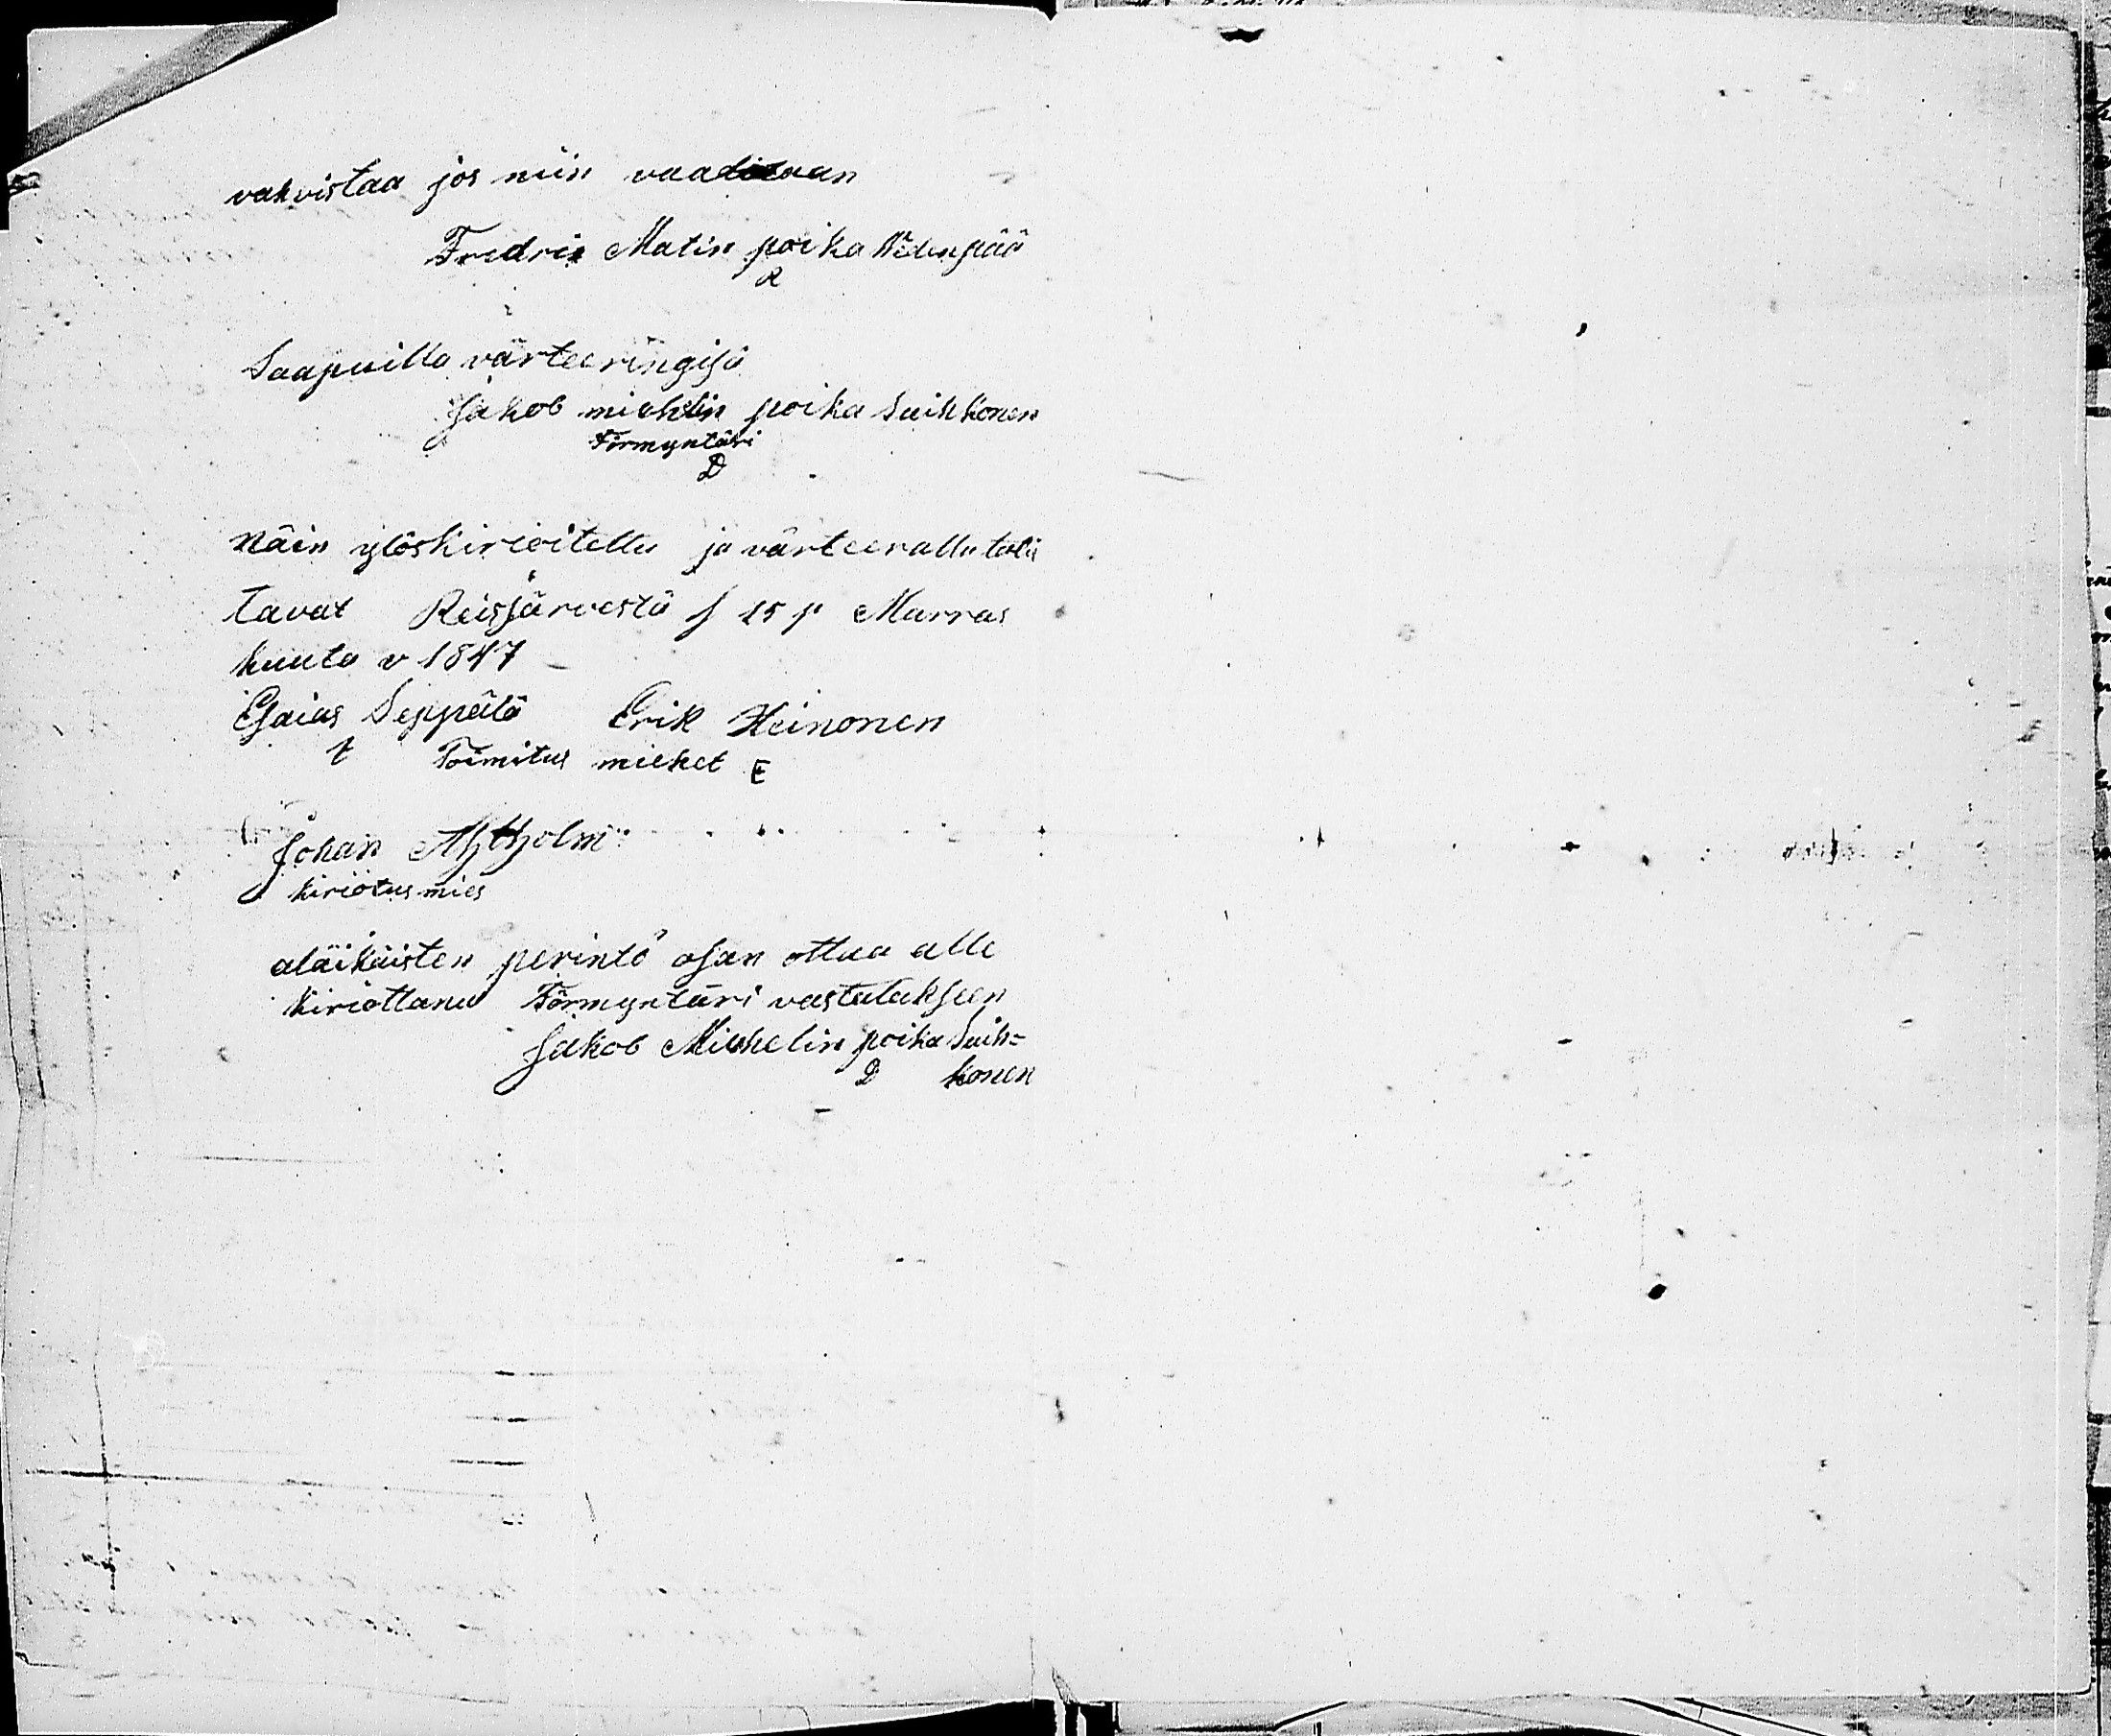 vahvistaa jos niin vaaditaan
Fredrik Matin poika Wedenpää
R
Saapuilla värteeringisä
Jakob michelin poika Suikkonen
Förmyntäri
D
Näin ylöskirioitettu ja värteerattu tulit
tavat Reisjärvestä s 15 p Marras
kuuta v 1847
Esaias Seppälä Erik Heinonen
t Toimitus miehet E
Johan
kiriötus mies
aläikäisten perintö osan ottaa alle
kiriottanu Förmyntäri vastataksen
Jakob Michelin poika Suik=
D konen